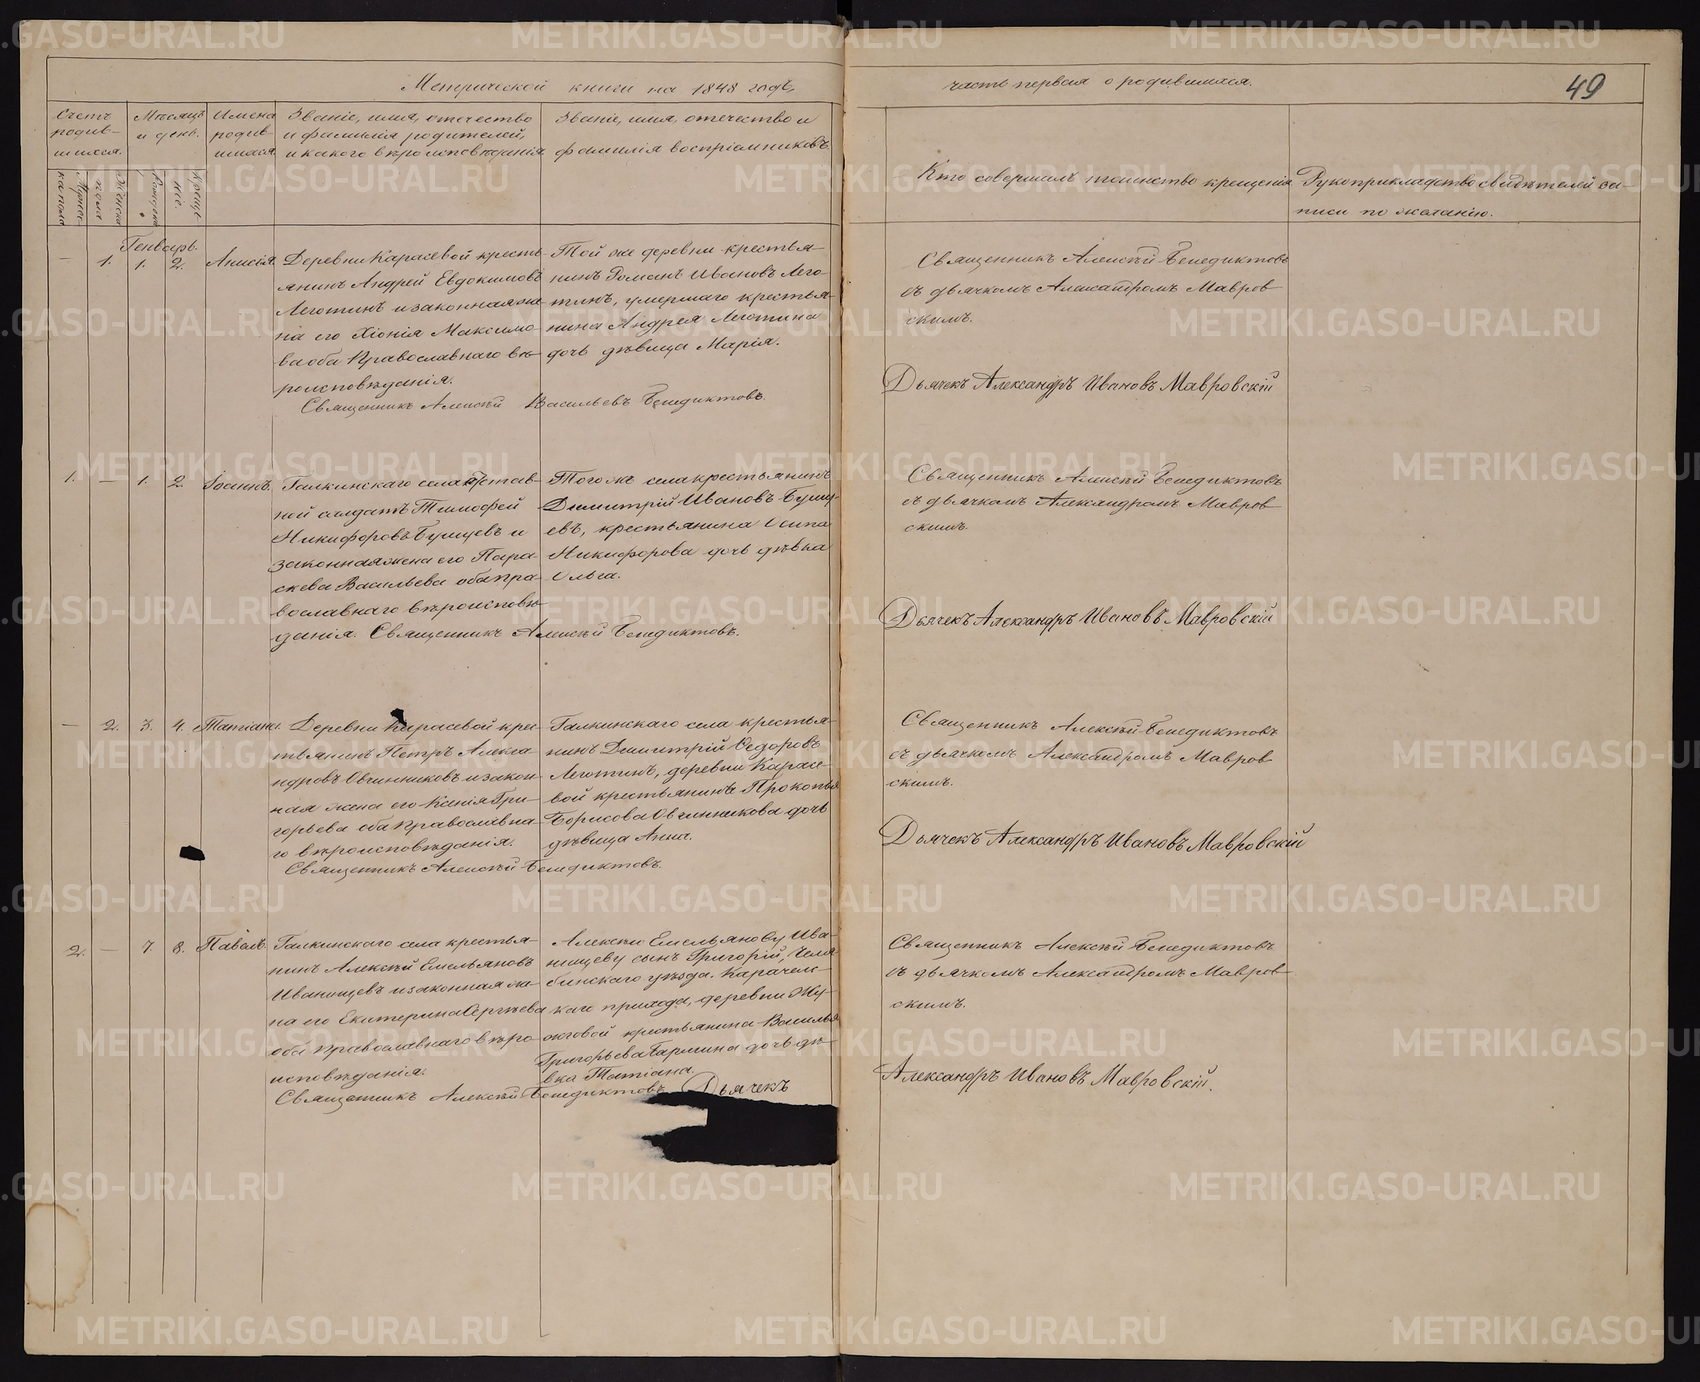 Метрической книги на 1848 годъ,
часть первая о родившихся.
49
Счетъ родив-шихся.
Мѣсяцъ и день.
Имена родив-шихся.
Званіе, имя, отечество
и фамилія родителей,
и какого вѣроисповѣданія
Званіе, имя, отечество и
фамилія воспріемниковъ.
Кто совершалъ таинство крещенія
Рукоприкладство свидѣтелей за-
писи по желанію.
Мужес-каго пола
Женска пола
Рожденія
Креще-нія.
Генварь.
— 1. 1. 2. Анисія.
Деревни Карасевой кресть-
янинъ Андрей Евдокимовъ
Леготинъ и законная же-
на его Хіонія Максимо-
ва оба Православнаго вѣ-
роисповѣданія.
Той же деревни крестья-
нинъ Романъ Ивановъ Лего-
тинъ, умершаго крестья-
нина Андрея Леготина
дочь дѣвица Марія.
Священникъ Алексѣй Васильевъ Бенедиктовъ.
Священникъ Алексѣй Бенедиктовъ
съ дьячкомъ Александромъ Мавров-
скимъ.
Дьячекъ Александръ Ивановъ Мавровскій
1. — 1. 2. Іоаннъ.
Галкинскаго села отстав-
ной солдатъ Тимофей
Никифоровъ Бушуевъ и
законная жена его Пара-
скева Васильева оба пра-
вославнаго вѣроисповѣ-
данія. Священникъ Алексѣй Бенедиктовъ.
Того же села крестьянинъ
Димитрій Ивановъ Бушу-
евъ, крестьянина Осипа
Никифорова дочь дѣвка
Ольга.
Священникъ Алексѣй Бенедиктовъ
съ дьячкомъ Александромъ Мавров-
скимъ.
Дьячекъ Александръ Ивановъ Мавровскій
— 2. 3. 4. Татіана.
Деревни Карасевой крес-
тьянинъ Петръ Алекса-
ндровъ Овчинниковъ и закон-
ная жена его Ксенія Гри-
горьева оба православна-
го вѣроисповѣданія.
Галкинскаго села крестья-
нинъ Димитрій Ѳедоровъ
Леготинъ, деревни Карасе-
вой крестьянина Прокопья
Борисова Овчинникова дочь
дѣвица Анна.
Священникъ Алексѣй Бенедиктовъ.
Священникъ Алексѣй Бенедиктовъ
съ дьячкомъ Александромъ Мавров-
скимъ.
Дьячекъ Александръ Ивановъ Мавровскій
2. — 7. 8. Павелъ
Галкинскаго села крестья-
нинъ Алексѣй Емельяновъ
Иванищевъ и законная же-
на его Екатерина Сергѣева
оба православнаго вѣро-
исповѣданія.
Алексѣя Емельянову Ива-
нищеву сынъ Григорій, Челя-
бинскаго уѣзда. Карачель-
каго прихода, деревни Жу-
ковой крестьянина Василья
Григорьева дочь дѣ-
вка Татіана.
Священникъ Алексѣй Бенедиктовъ. Дьячекъ
Священникъ Алексѣй Бенедиктовъ
съ дьячкомъ Александромъ Мавров-
скимъ.
Александръ Ивановъ Мавровскій.
METRIKI.GASO-URAL.RU